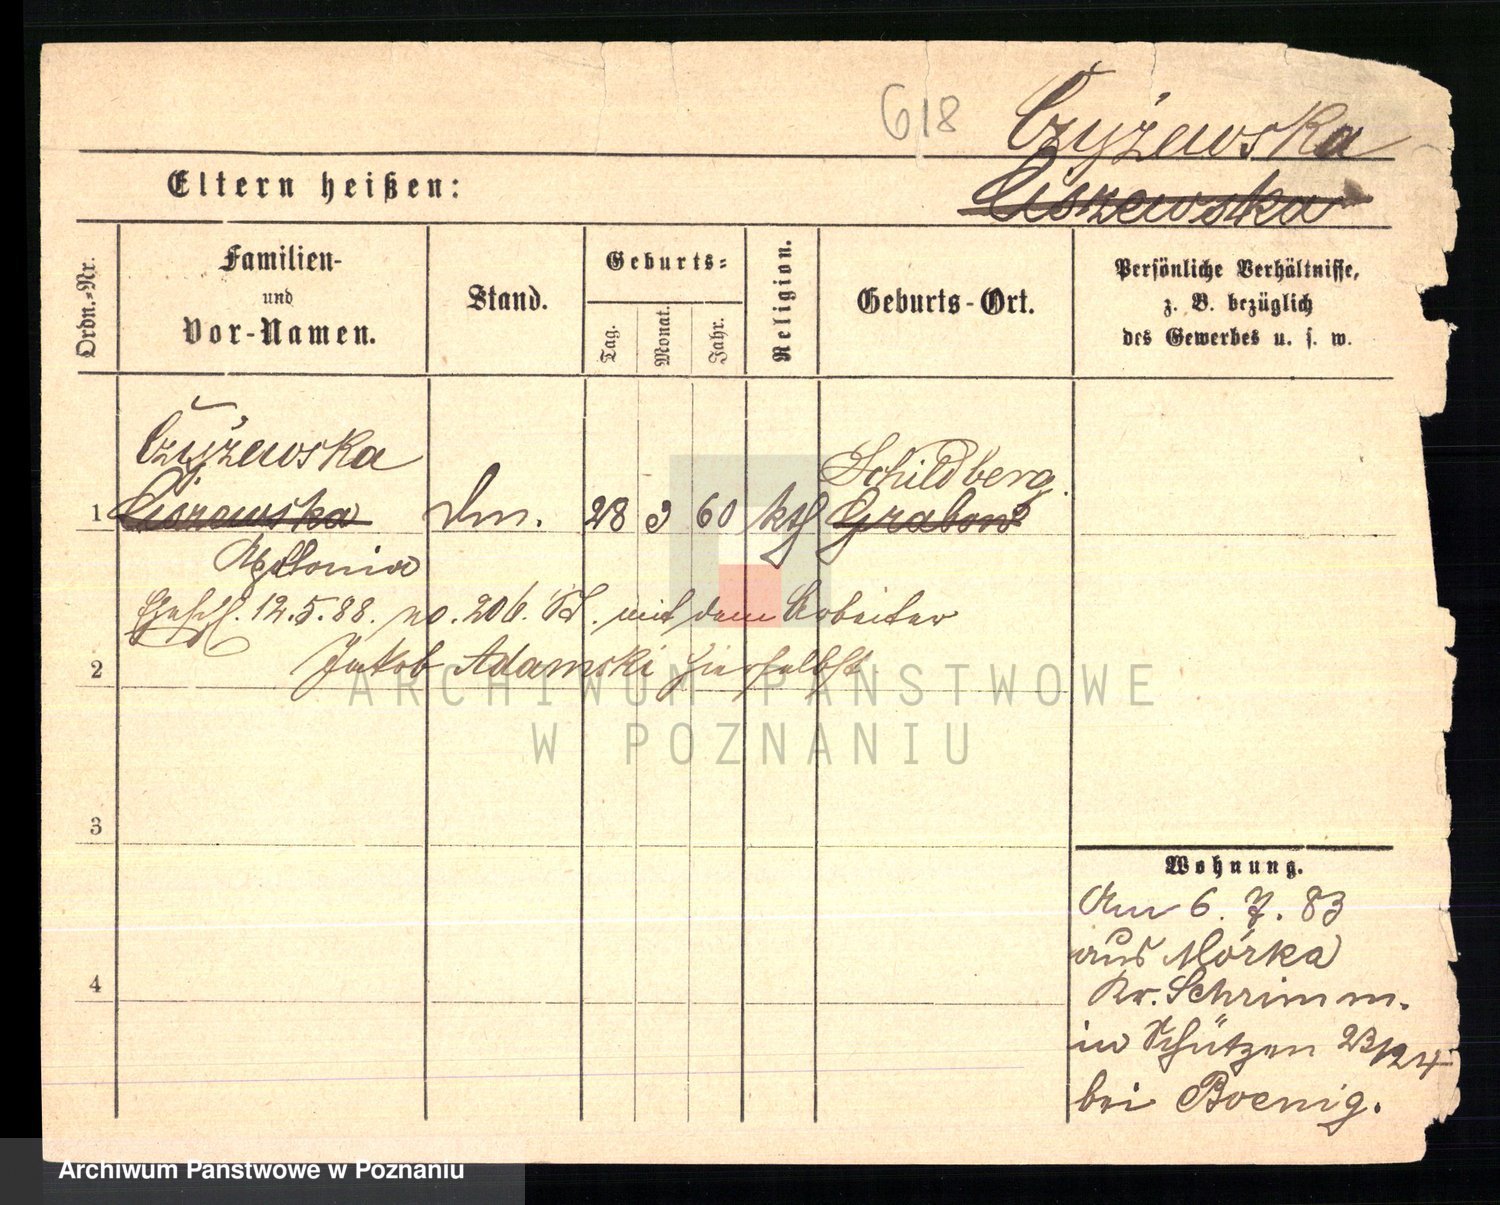 618 Czyżewska
Eltern heißen: Ciszewska
Ordn.-Nr.
Familien-
und
Vor-Namen.
Stand.
Geburts-
Tag. Monat. Jahr.
Religion.
Geburts-Ort.
Persönliche Verhältnisse,
z. B. bezüglich
des Gewerbes u. s. w.
Czyżewska Schildberg.
1 Ciszewska 28 9 60 kth Grabow
Apolonia
12.5.88. no. 206. mit dem Arbeiter
2 Jakob Adamski hierselbst
ARCHIWUM PAŃSTWOWE
W POZNANIU
3
Wohnung.
4
Am 6. 7. 83
aus Mórka
Kr. Schrimm.
in Schützen 23/24
bei Boenig.
Archiwum Państwowe w Poznaniu